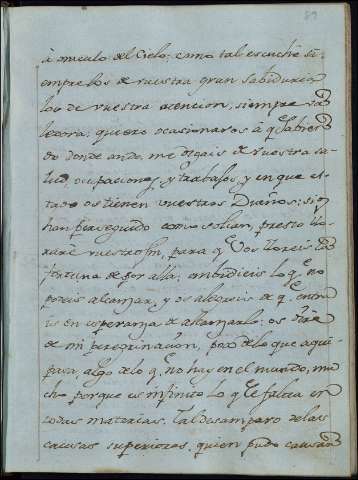 89
à oraculo del Cielo; como tal escuchè si
empre los de vuestra gran Sabiduria
los de vuestra atencion, siempre
quiero ocasionaros à q sabien
do donde ando, me digais de vuestra sa
lud, ocupaciones, y trabajos, y en que es
tado os tienen vuestros Dueños; si os
han perseguido como solian, presto llo
rarè vuestro fin, para q Vos lloreis la
fortuna de por allà; embidieis lo q no
podeis alcanzar, y os alegreis de q entra
is en esperanza de alcanzarlo; os dirè
de mi peregrinacion, poco de lo que aqui
passa, algo de lo q no hay en el mundo, mu
cho porque es infinito lo q le falta en
todas materias. Tal desamparo de las
causas superiores, quien pudo causar